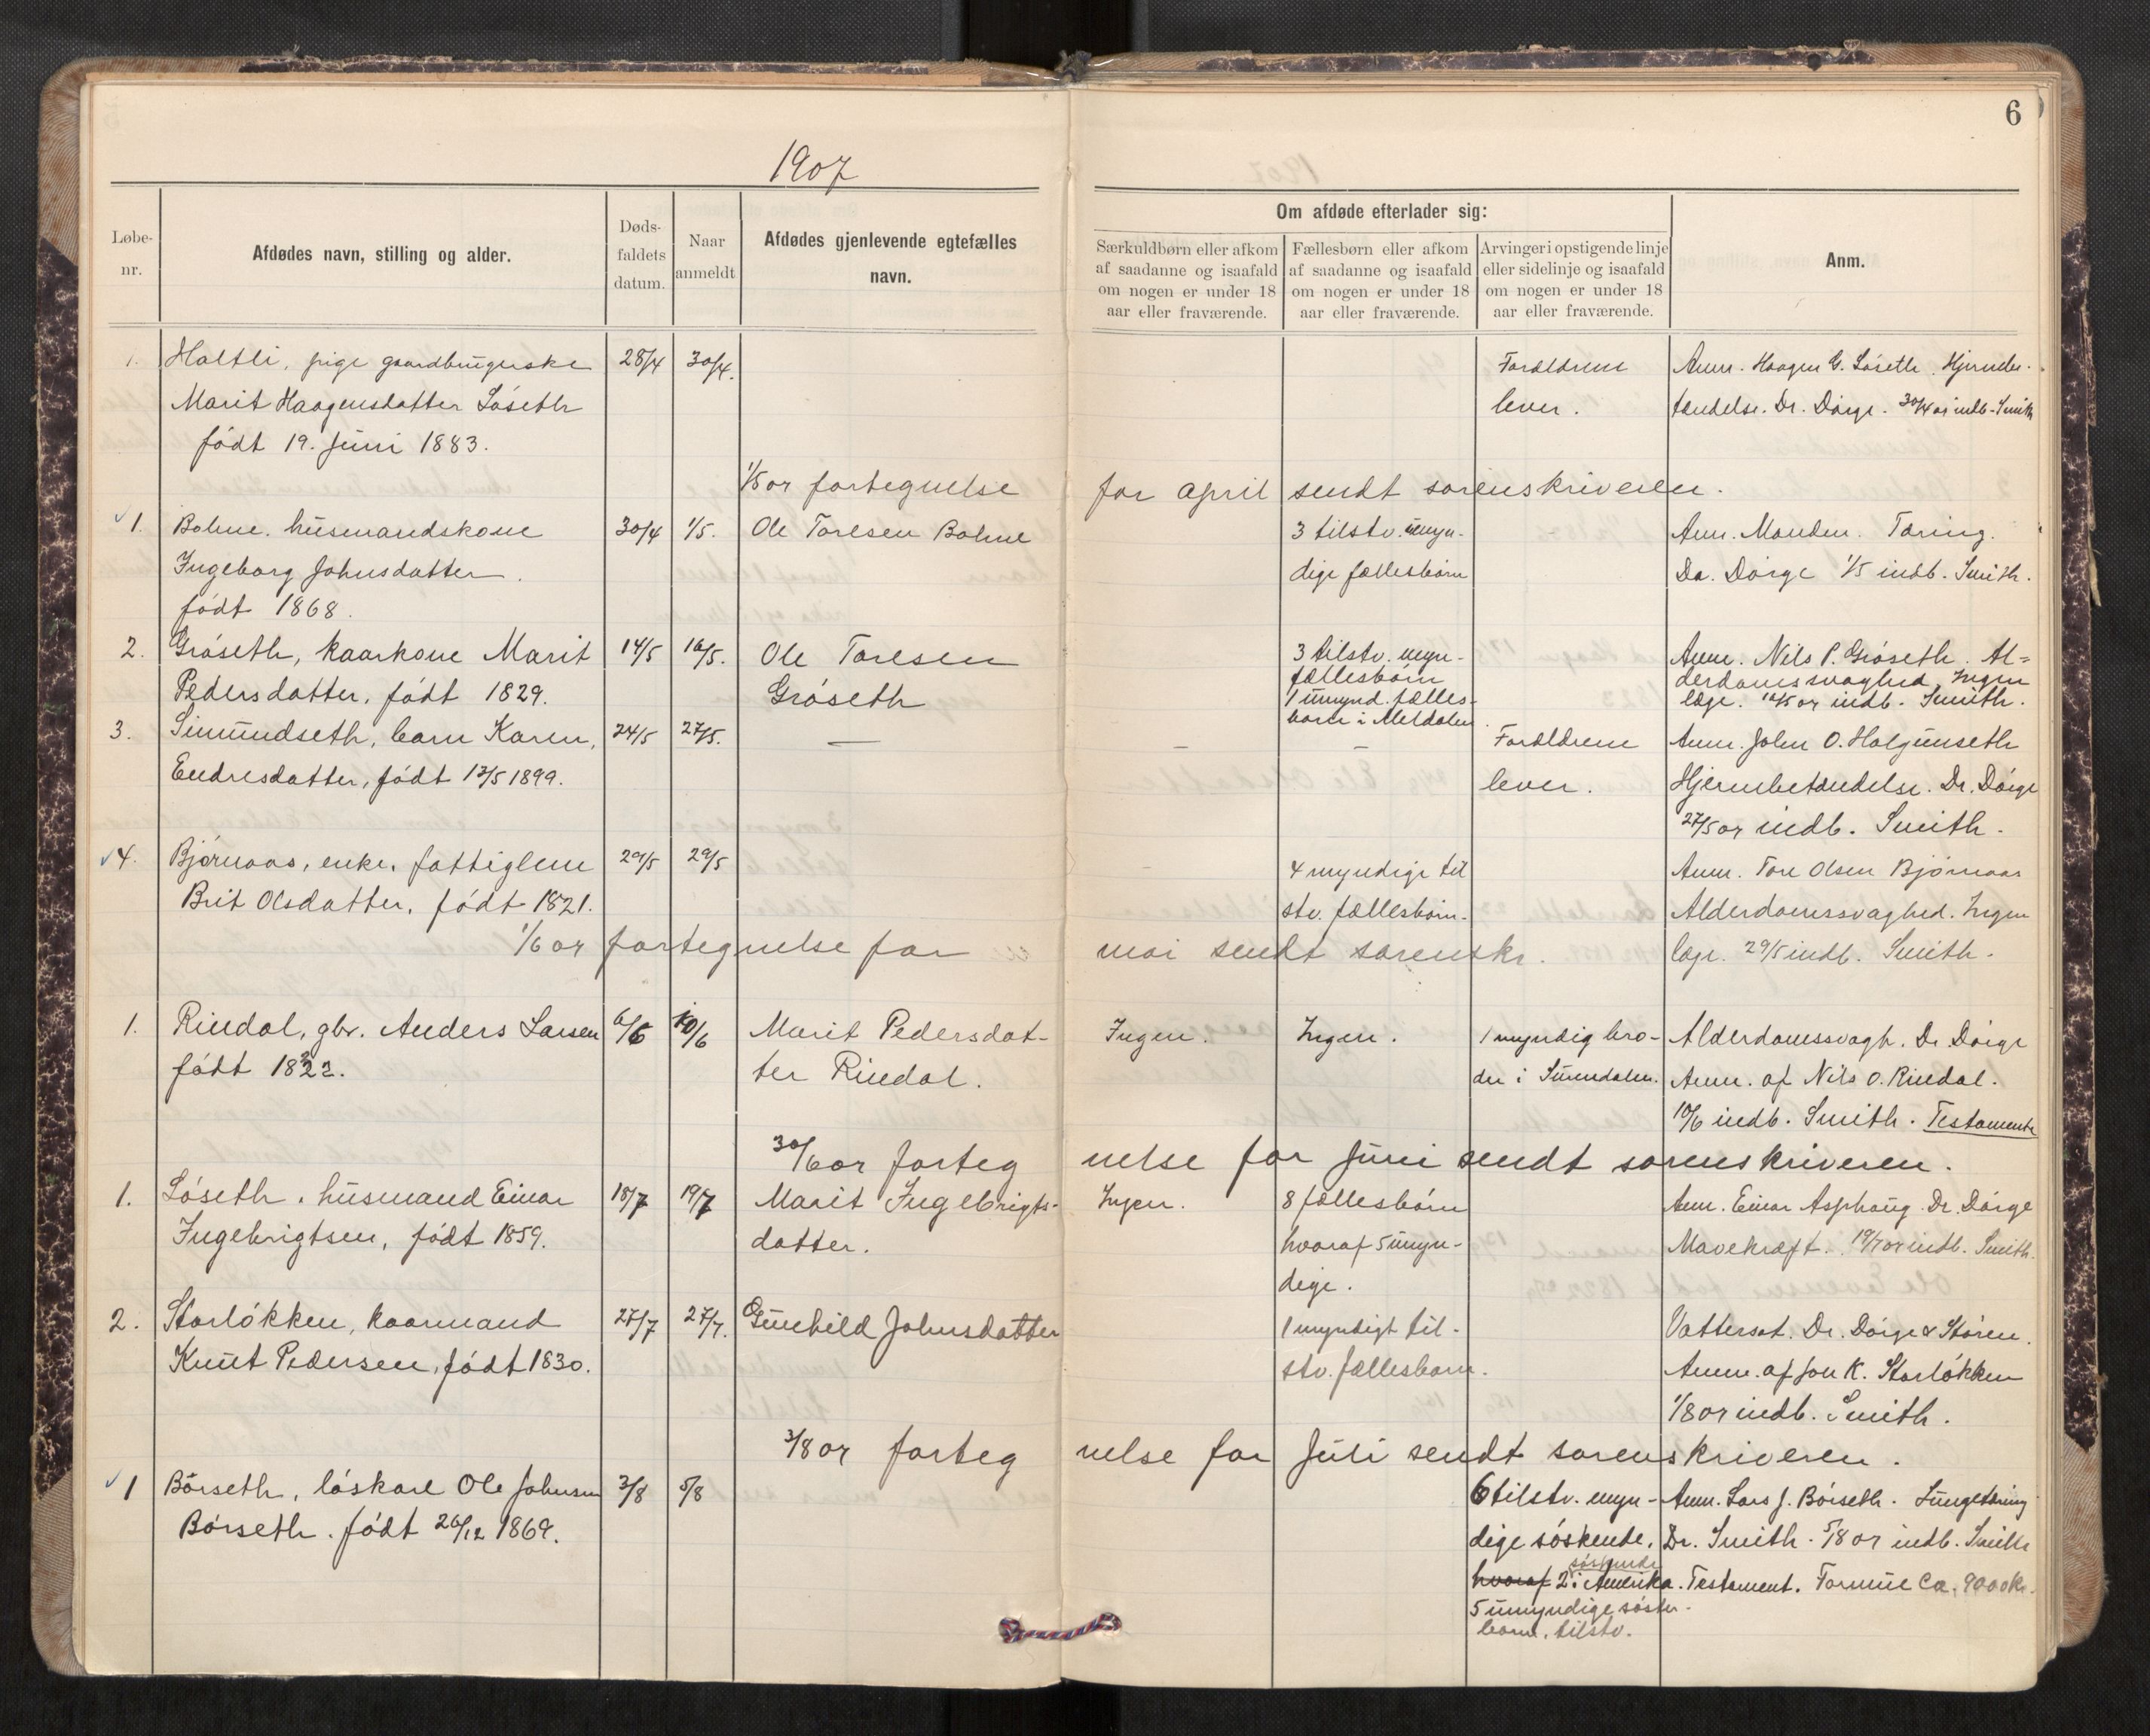 6
1907
Løbe-
nr.
Afdødes navn, stilling og alder.
Døds-
faldets
datum.
Naar
anmeldt
Afdødes gjenlevende egtefælles
navn.
Om afdøde efterlader sig:
Særkuldbørn eller afkom
af saadanne og isaafald
om nogen er under 18
aar eller fraværende.
Fællesbørn eller afkom
af saadanne og isaafald
om nogen er under 18
aar eller fraværende.
Arvinger i opstigende linje
eller sidelinje og isaafald
om nogen er under 18
aar eller fraværende.
Anm.
1. Holtli, pige gaardbrugerske 28/4 30/4.
Marit Haagensdatter Løseth
født 19. juni 1883.
Forældrene
lever.
Anm. Haagen G. Løseth. Hjernebe-
tændelse. Dr. Dørge. 30/4 07 indb. Smith
1/5 07 fortegnelse for april sendt sorenskriveren.
1. Bolme. husmandskone 30/4 1/5. Ole Toresen Bolme
Ingeborg Johnsdatter.
født 1868.
3 tilstv. umyn-
dige fællesbørn
Anm. Manden. Tæring.
Dr. Dørge 1/5 indb. Smith.
2. Grøseth, kaarkone Marit 14/5 16/5. Ole Toresen
Pedersdatter, født 1829. Grøseth
3 tilstv. myn-
fællesbørn
1 umynd. fælles-
barn i Meldalen.
Anm. Nils P. Grøseth. Al=
derdomssvaghed. Ingen
læge. 16/5 07 indb. Smith.
3. Simundseth, barn Karen, 24/5 27/5. —
Endresdatter, født 12/5 1899.
– –
Forældrene
lever.
Anm. John O. Halgunseth
Hjernebetændelse. Dr. Dørge
27/5 07 indb. Smith.
4. Bjørnaas, enke, fattiglem 29/5 29/5
Brit Olsdatter, født 1821.
–
4 myndige til
stv. fællesbørn.
Anm. Tore Olsen Bjørnaas
Alderdomssvaghed. Ingen
læge. 29/5 indb. Smith.
1/6 07 fortegnelse for mai sendt sorenskr.
1. Rindal, gbr. Anders Larsen 6/6 10/6 Marit Pedersdat-
født 1822. ter Rindal.
Ingen. Ingen. 1 myndig bro-
der i Surendalen.
Alderdomssvagh. Dr. Dørge
Anm. af Nils O. Rindal.
10/6 indb. Smith. Testamente
30/6 07 fortegnelse for juni sendt sorenskriveren.
1. Løseth, husmand Einar 18/7 19/7 Marit Ingebrigts-
Ingebrigtsen, født 1859. datter.
Ingen. 8 fællesbørn
hvoraf 5 umyn-
dige.
Anm. Einar Asphaug. Dr. Dørge
Mavekræft. 19/7 07 indb. Smith.
2. Storløkken, kaarmand 27/7 27/7. Gunhild Johnsdatter
Knut Pedersen, født 1830.
1 myndigt til-
stv. fællesbarn.
Vattersot. Dr. Dørge & Støren.
Anm. af Jon K. Storløkken
1/8 07 indb. Smith.
3/8 07 fortegnelse for juli sendt sorenskriveren.
1 Børseth, løskarl Ole Johnsen 3/8 5/8
Børseth. født 26/12 1869.
6 tilstv. myn-
dige søskende.
hvoraf 2 søskende i Amerika.
5 umyndige søster-
børn. tilstv.
Anm. Lars J. Børseth. Lungetæring
Dr. Smith. 5/8 07 indb. Smith
Testament. Formue ca. 9000 kr.